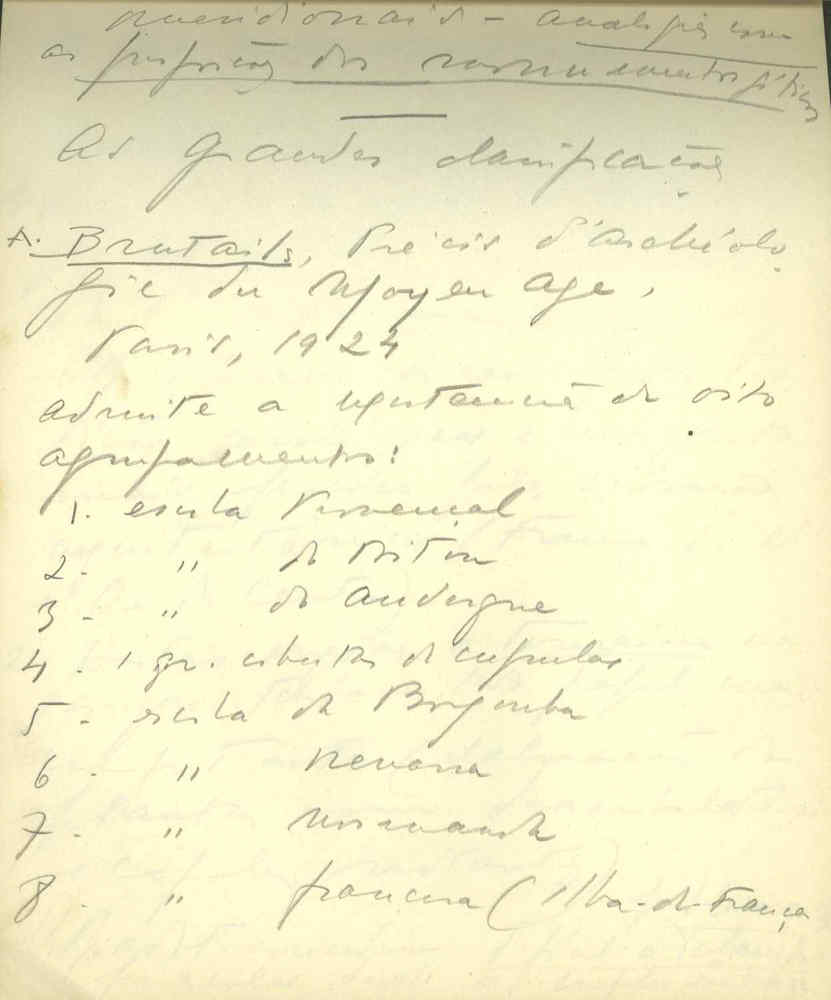 meridionais - analogias com
as proporções dos monumentos góticos
As grandes classificações
A. Brutails, Précis d'Archéolo
gie du Moyen Age,
Paris, 1924
admite a existencia de oito
agrupamentos:
1. escola Provençal
2 - " do Poitou
3 - " do Auvergne
4 - 1 gr. cobertas de cupulas
5 - escola da Borgonha
6 - " renana
7 - " Normanda
8 - " francesa (Ilha-de-França